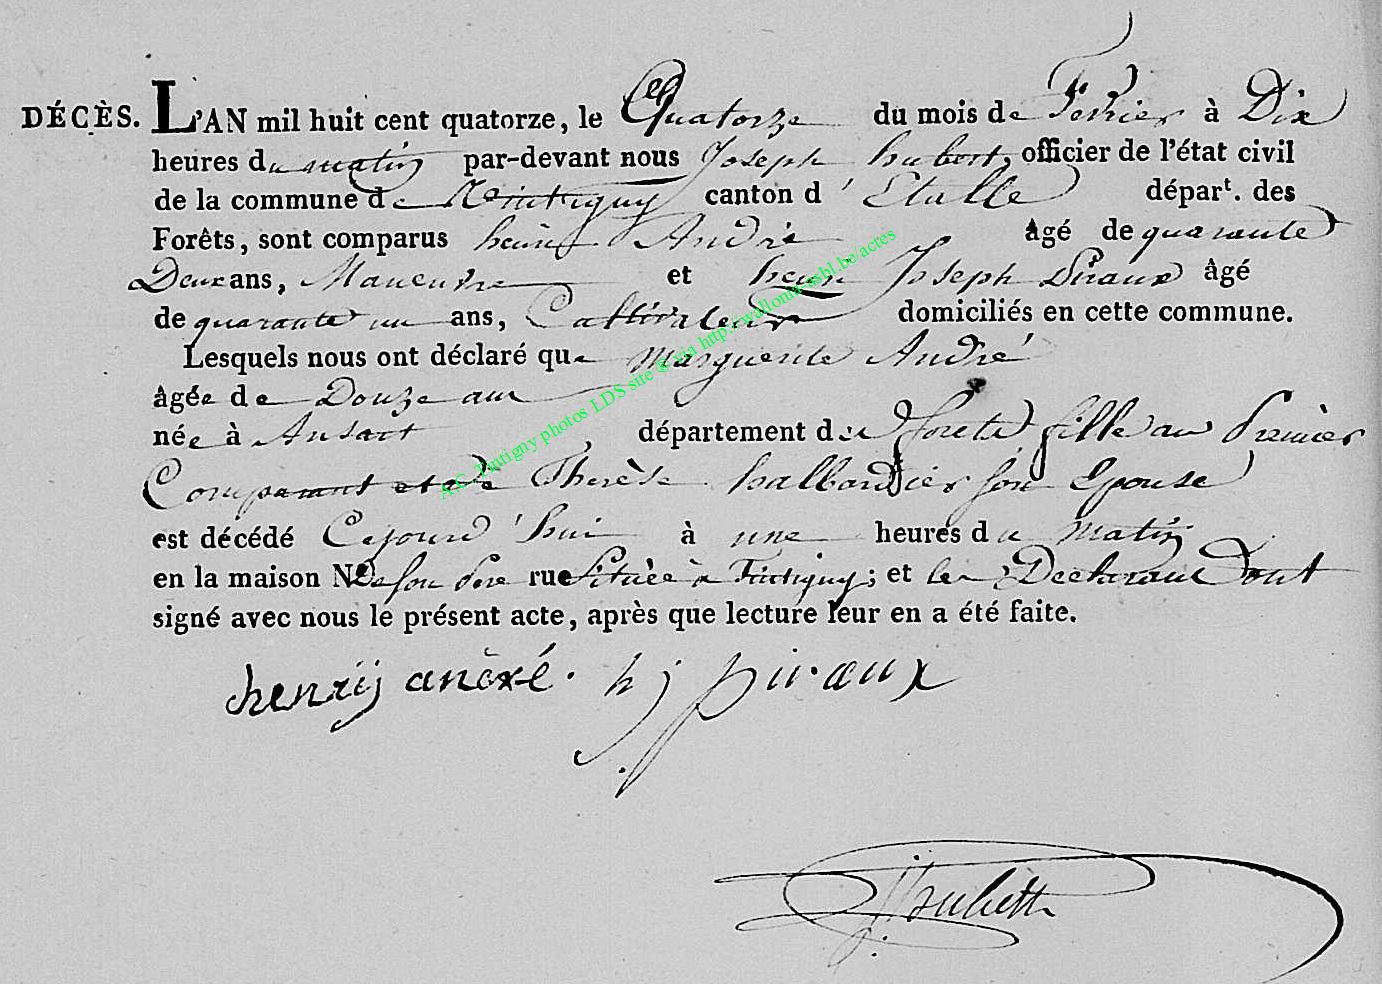 DÉCÈS. L'AN mil huit cent quatorze, le Quatorze du mois de Fevrier à Dix
heures du matin par-devant nous Joseph hubert, officier de l'état civil
de la commune de tintigny canton d'Etalle départ. des
Forêts, sont comparus henry André âgé de quarante
Deux ans, Maneuvre et henri Joseph Piraux âgé
de quarante un ans, Cultivateur domiciliés en cette commune.
Lesquels nous ont déclaré que Marguerite André
âgée de Douze ans
née à Ansart département des forets fille au Premier
Comparant et de Therèse hallbardier son Epouse
est décédé Cejourd'hui à une heures du matin
en la maison N De son Pere rue Située à Tintigny; et les Declarans ont
signé avec nous le présent acte, après que lecture leur en a été faite.
henrij andré. h j piraux
J hubert
A.C. Tintigny photos LDS site © via http://wallonia-asbl.be/actes